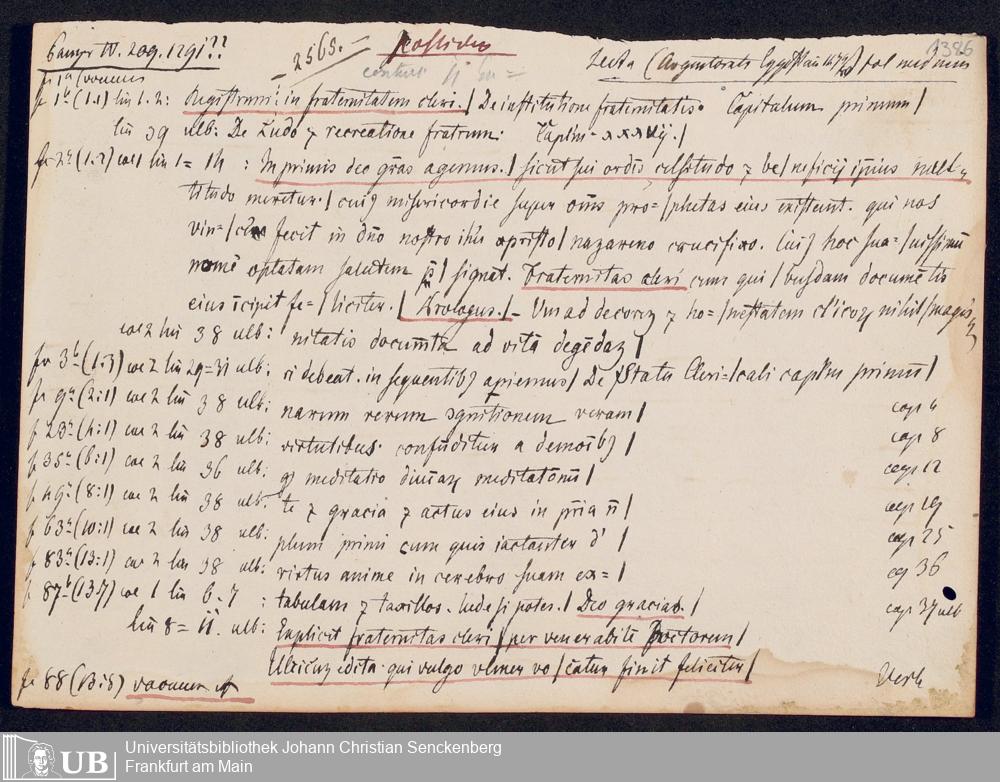 Panzer IV. 209. 1291??
2563.
1386
lecta (Argentorati Eggestein 1472) fol minus
f 1a vacuus
f 1b (1.1) lin 1. 2: Registrum in fraternitatem cleri. | De institutione fraternitatis. Capitulum primum |
lin 39 ulb: De ludo z recreatione fratrum. Caplm xxxvij. |
f 2a (1.2) col 1 lin 1 = 14 : In primis deo gras agemus. | sicut sui ordis celsitudo z be | neficij ipsius mult
titudo meretur. | cui9 misericordie super oms pro= | phetas eius existunt. qui nos
vin= | cere fecit in dno nostro ihu xpristo | nazareno crucifixo. Cui9 hoc sua= | uissimu
nome optatam salutem | signat. Fraternitas cleri cum qui | busdam documetis
eius icipit fe= | liciter. | Prologus. | Vm ad decorez z ho= | nestatem cl'icoz nihil | magis
col 2 lin 38 ulb: nitatis documeta ad vita degedaz |
f 3b (1.3) col 2 lin 29=31 ulb: ri debeat. in sequentib9 apiemus | De Statu Cleri= | cali caplm primu |
f 9a (2:1) col 2 lin 38 ulb: narum rerum cognitionem veram | cap 4
f 23a (4:1) col 2 lin 38 ulb: virtutibus confunditur a demoib9 | cap 8
f 35a (6:1) col 2 lin 36 ulb: q meditatio diuaz meditatonu | cap 12
f 49a (8:1) col 2 lin 38 ulb: te z gracia z actus eius in pria n | cap 19
f 63a (10:1) col 2 lin 38 ulb: plum primi cum quis iactanter d' | cap 25
f 83a (13:1) col 2 lin 38 ulb: virtus anime in cerebro suam ex= | cap 36
f 87b (13.7) col 1 lin 6. 7 : tabulam z taxillos. lude si potes. | Deo gracias. | cap 37 ulb
lin 8 = 11. ulb: Explicit fraternitas cleri | per venerabile Doctorem |
Ulricuz edita. qui vulgo vlmer vo | catur finit feliciter |
f 88 (13:8) vacuum
UB
Universitätsbibliothek Johann Christian Senckenberg
Frankfurt am Main